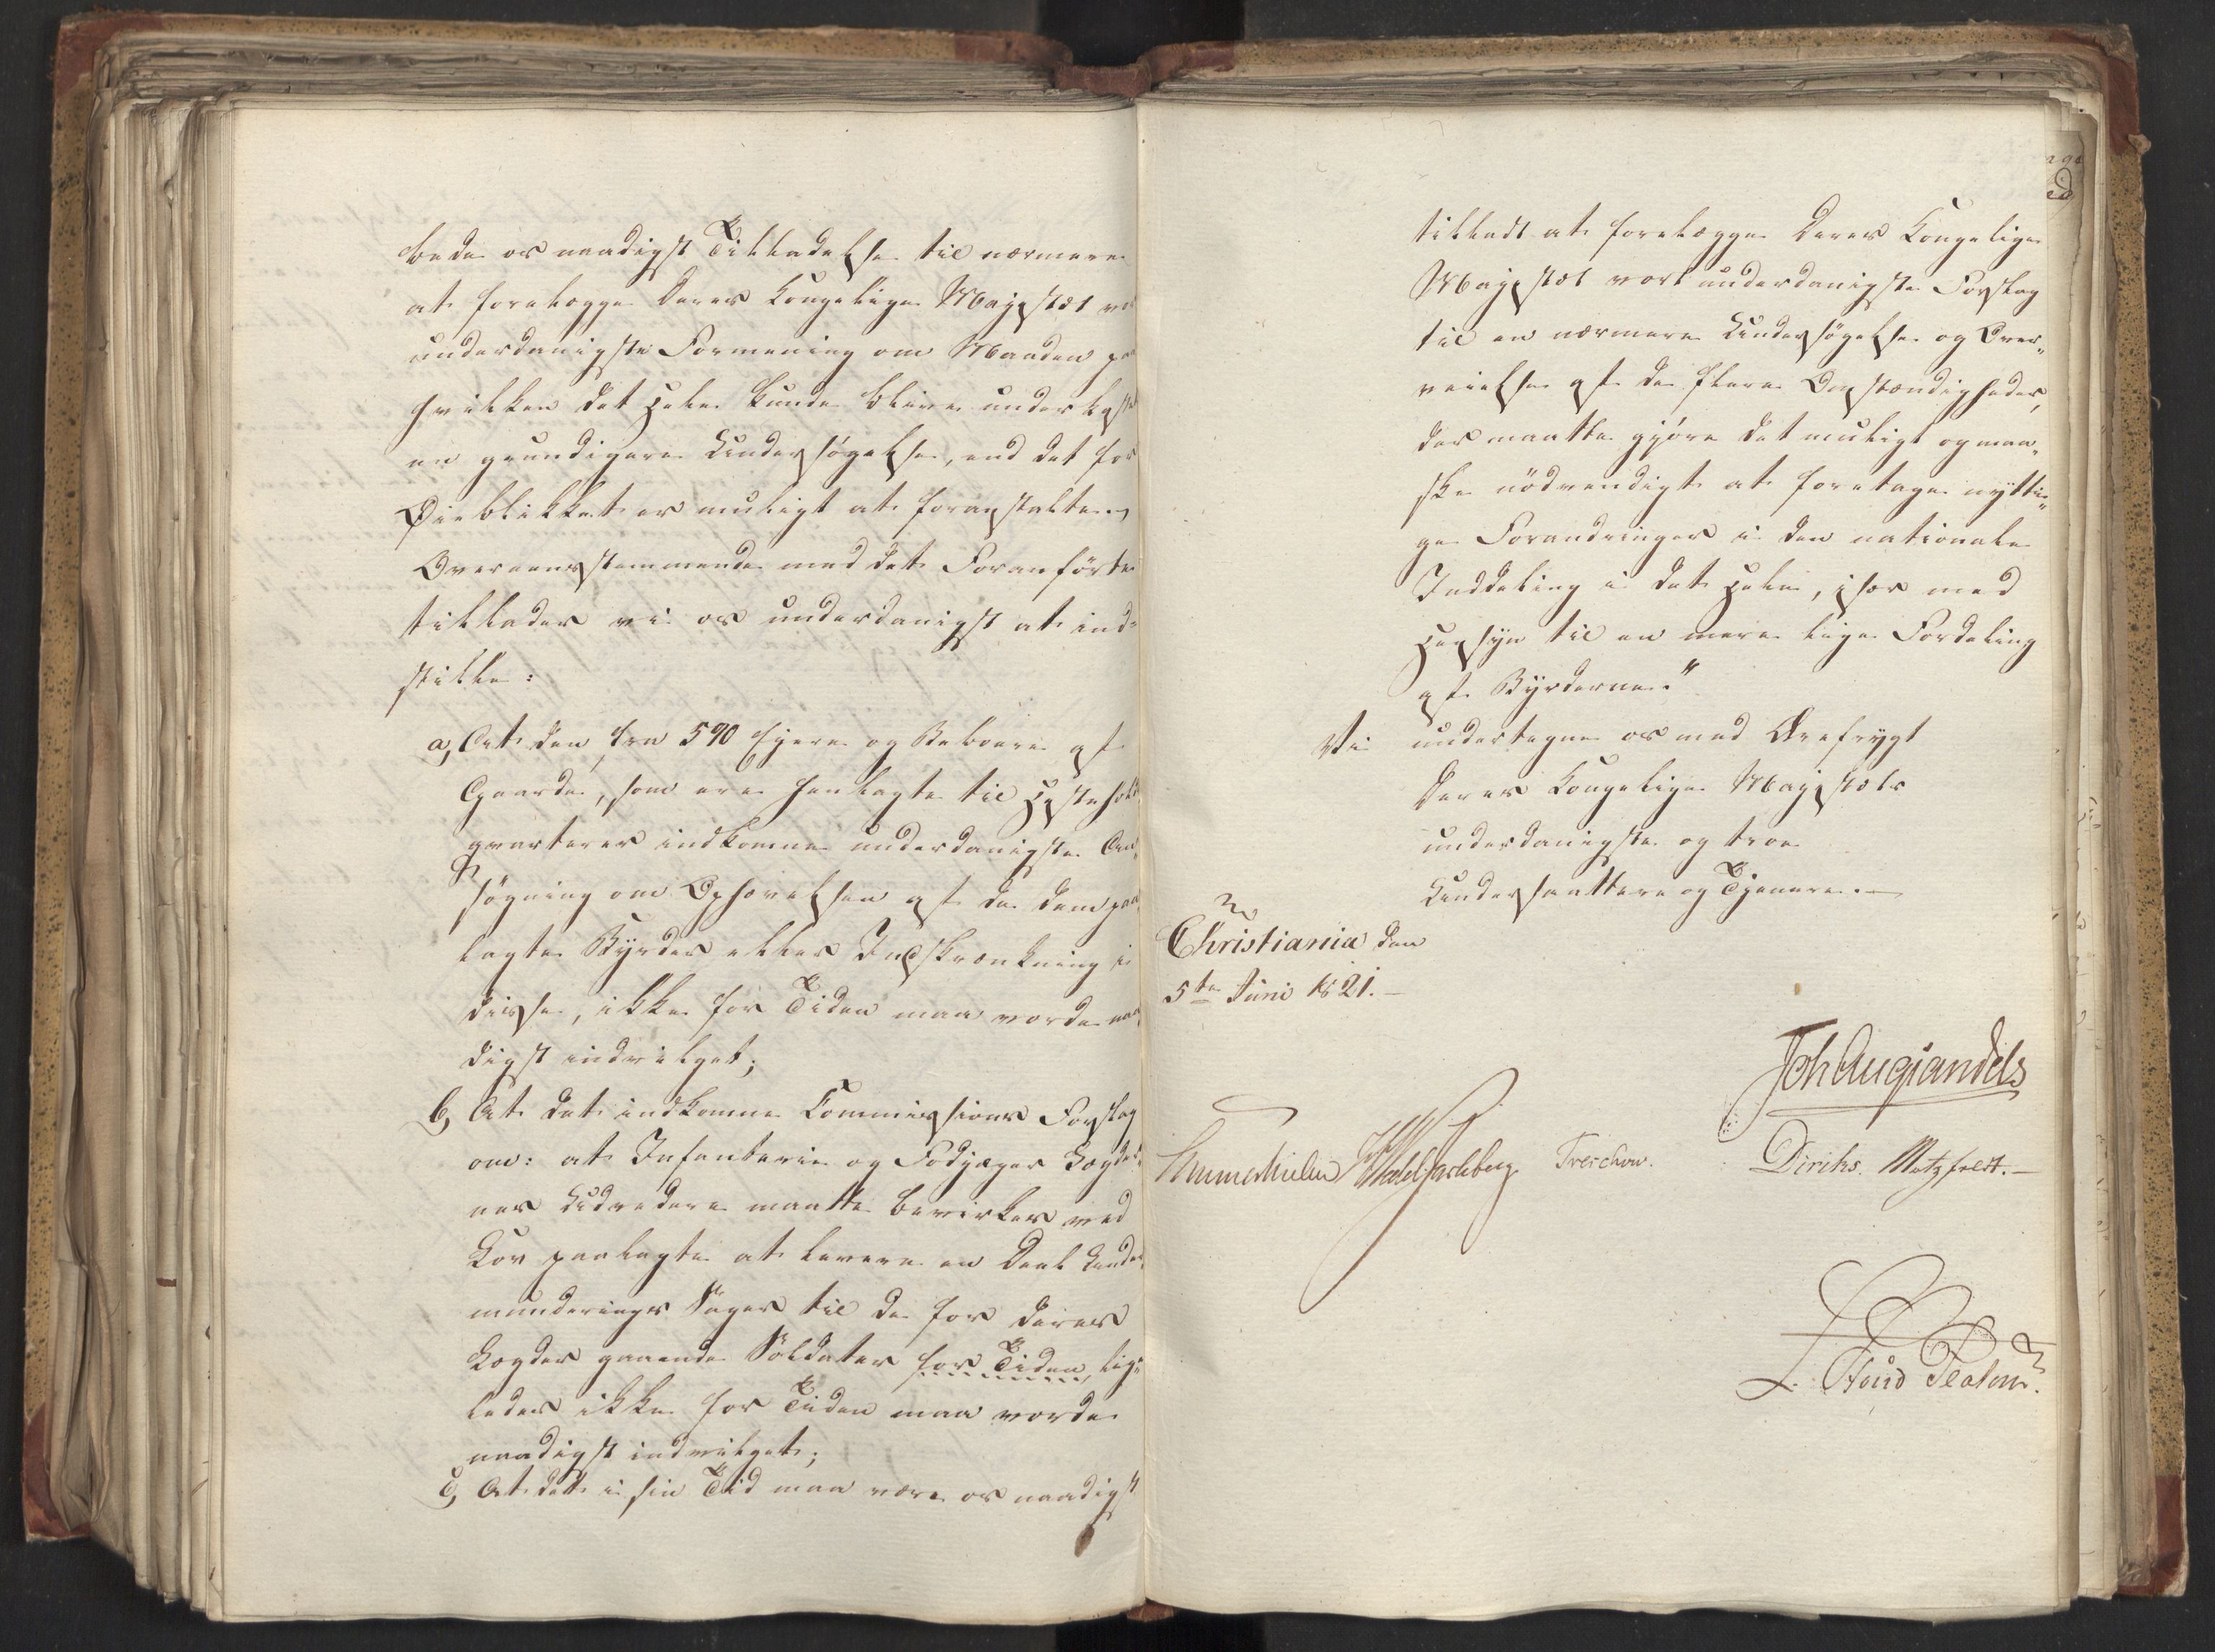 bede os naadigst Tilladelse til nærmere
at forelægge Deres Kongelige Majestæt vor
underdanigste Formening om Maaden paa
hvilken det Hele kunde blive underkastet
en grundigere Undersøgelse, end det for
Øieblikket er muligt at foranstalte.
Overeensstemmende med det Foranførte
tillader vi os underdanigst at ind-
stille:
a, At den, fra 590 Eiere og Beboere af
Gaarde, som ere henlagte til Hestehold
qvarterer indkomne underdanigste An-
søgning om Ophævelsen af de dem paa-
lagte Byrder eller Indskrænkning i
disse, ikke for Tiden maa vorde naa-
digst indvilget;
b, At det indkomne Commissions Forslag
om: at Infanterie og Fodjæger Lægder-
nes Udredere maatte bevirkes ved
Lov paalagte at levere en Deel Under-
munderings Sager til de for deres
Lægder gaaende Soldater for Tiden, lige-
ledes ikke for Tiden maa vorde
naadigst indvilget;
c, At det i sin Tid maa være os naadigst
tilladt at forelægge Deres Kongelige
Majestæt vort underdanigste Forslag
til en nærmere Undersøgelse og Over-
veielse af de flere Omstændigheder,
der maatte gjöre det muligt og maa-
ske nödvendigt at foretage nytti-
ge Forandringer i den nationale
Inddeling i det Hele, især med
Hensyn til en mere lige Fordeling
af Byrderne."
Vi undertegne os med Ærefrygt
Deres Kongelige Majestæts
underdanigste og troe
Undersaattere og Tjenere.
Christiania den
5te Juni 1821.
Joh Aug Sandels
Sommerhielm Wedel Jarlsberg Treschow. Diriks. Motzfeldt.
L. Stoud Platou.